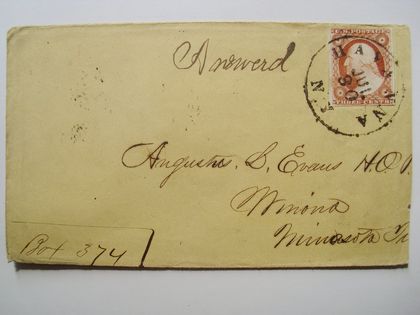 Answerd
U.S. POSTAGE
THREE CENTS
HAVANNA N.Y.
JUL
30
Augustus. S. Evans
Winona
Minnesota
Box 374